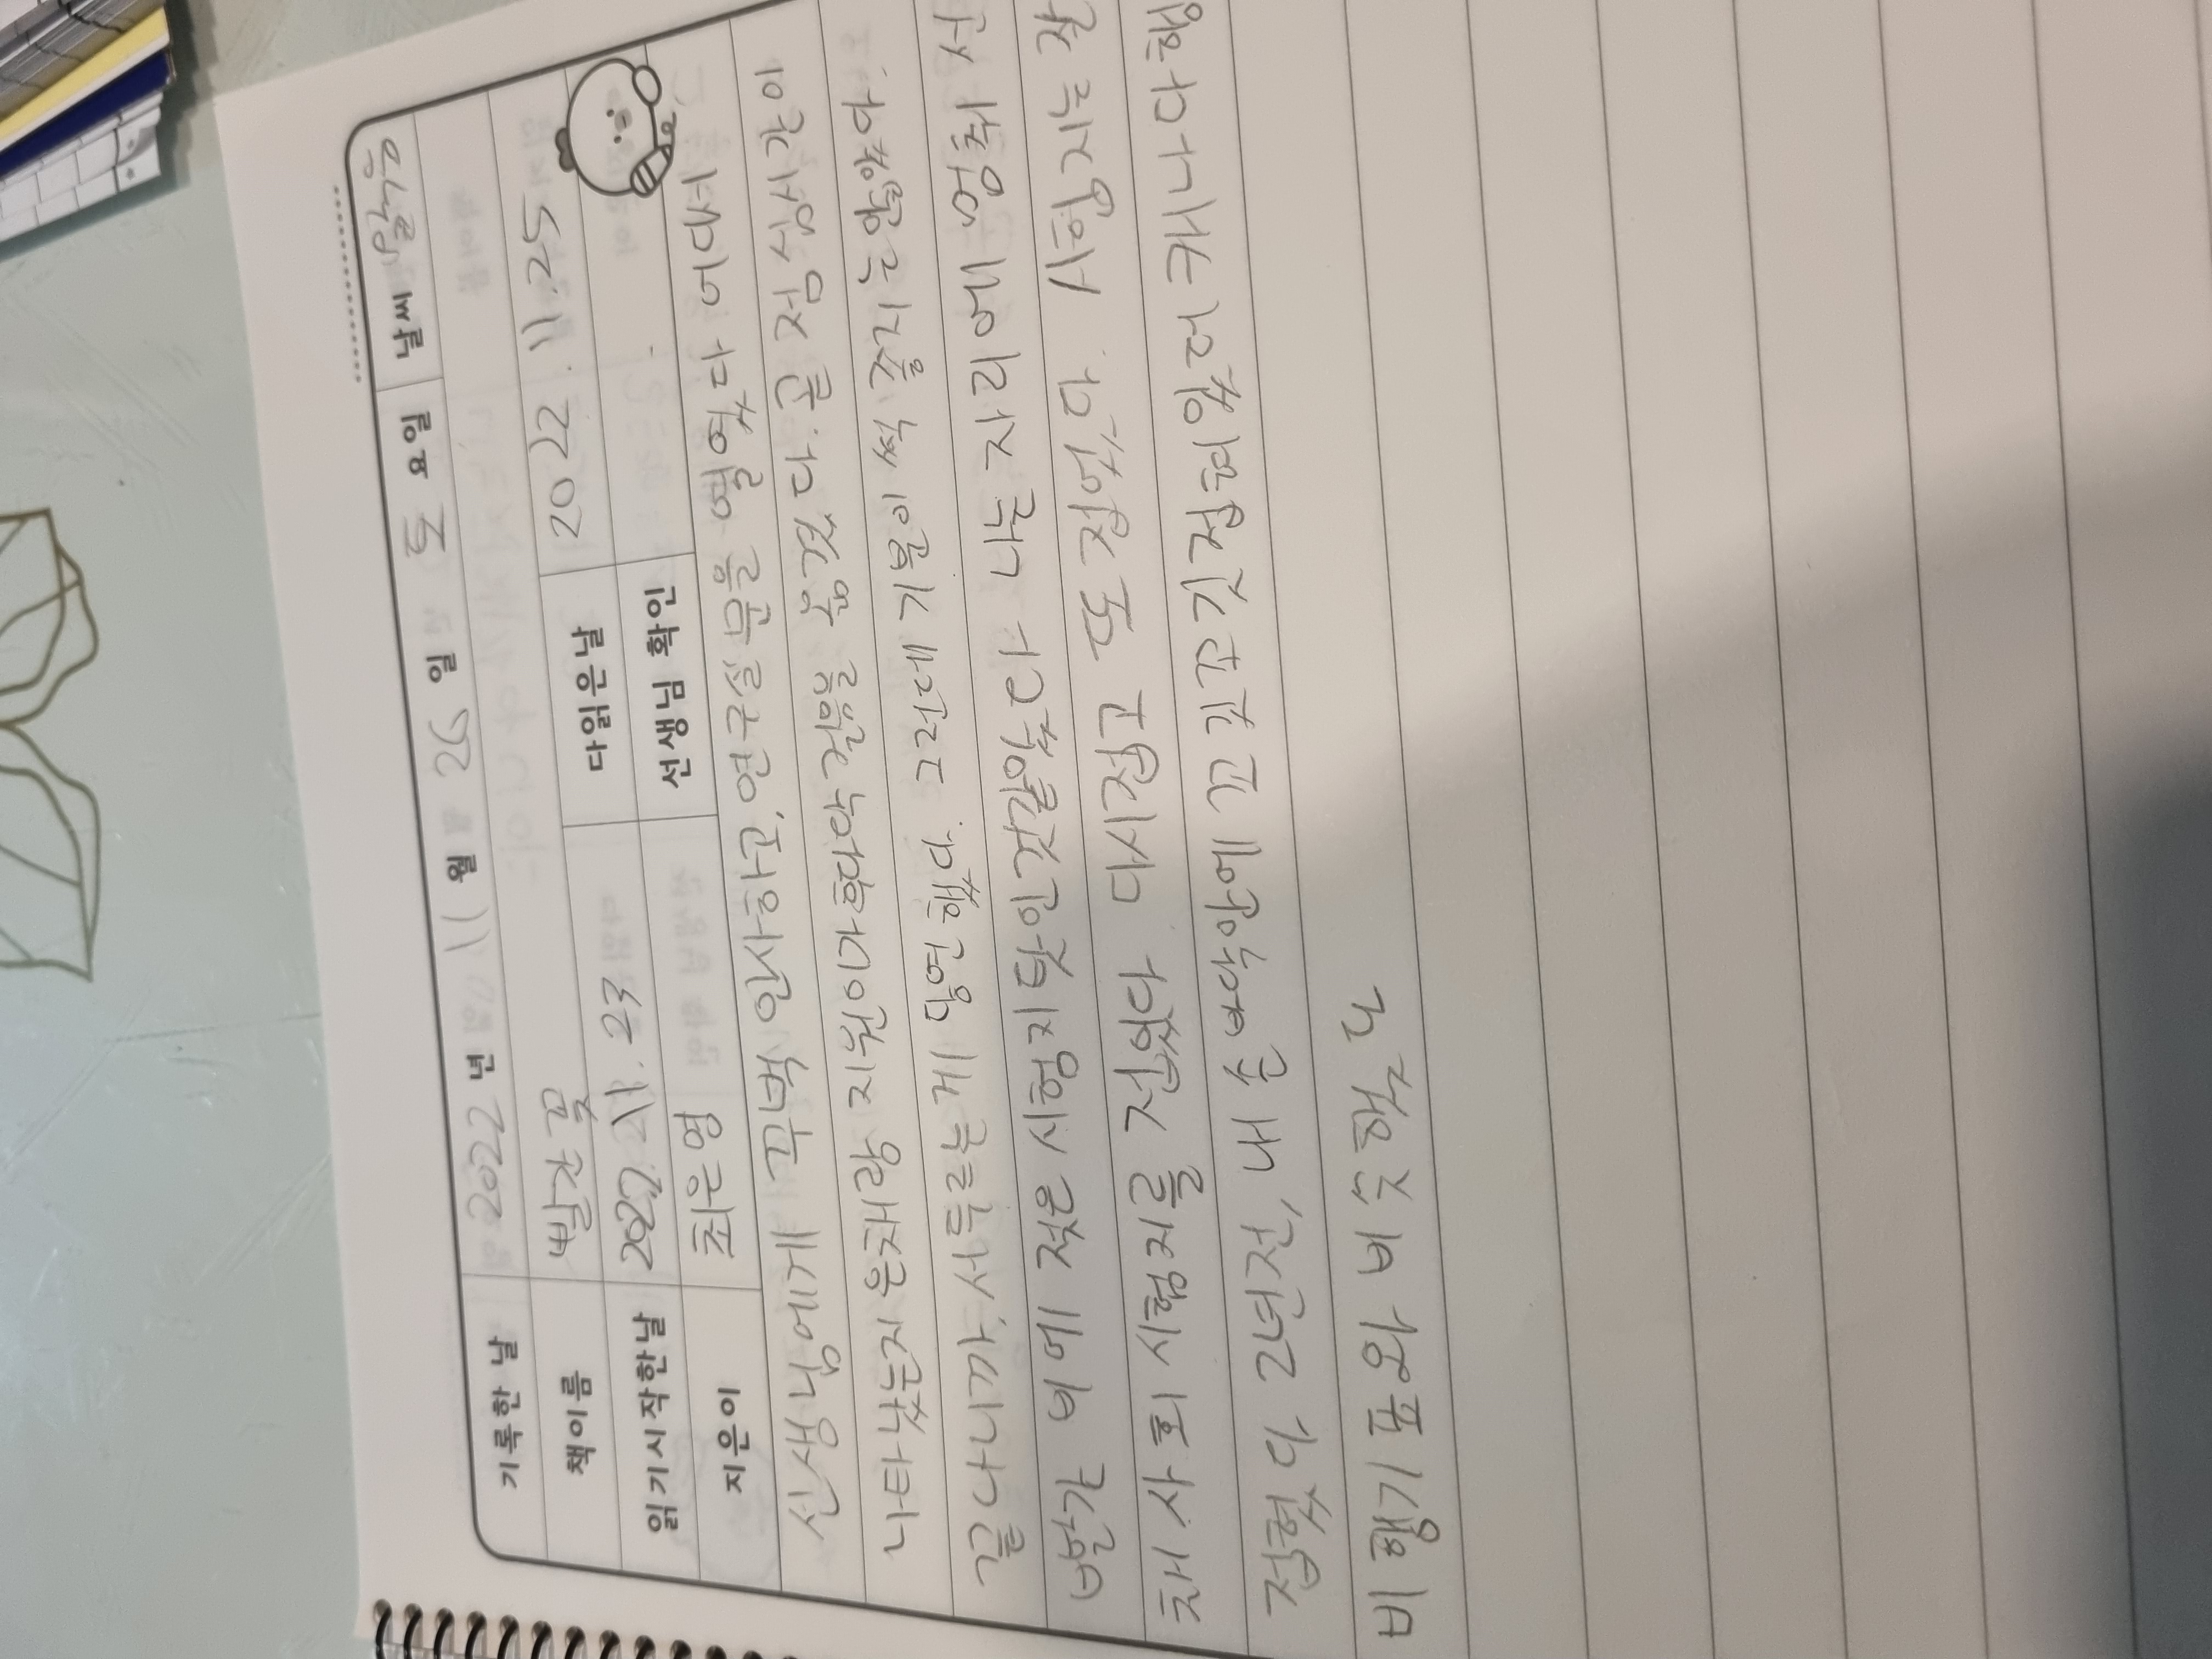 기록한 날 2022 년 11 월 26 일 토 요일 날씨
책이름 빨간 꽃
읽기시작한날 2022. 11. 23 다읽은날 2022. 11. 25
지은이 최은영 선생님 확인
선생님에게 꾸벅 인사하고, 연구실 문을 열였다 어디서
나타났는지 은채랑 지원이가 후다닥 걸음을 옮겼다. 곧 점심시간이
끝나니까, 서두르는게 당연했다. 그런데 기분이 썩 좋지는 않았다.
빨간 비에 젖은 시험지 탓인것같았다 나는 자리에 멈춰 선
채 사회 시험지를 접었다 다시접고 또 접었다. 시험지는 잘
접혔다 2년전, 내 손바닥안에 꼬깃꼬깃접혀있더 캐나다행
비행기표와 비슷했다